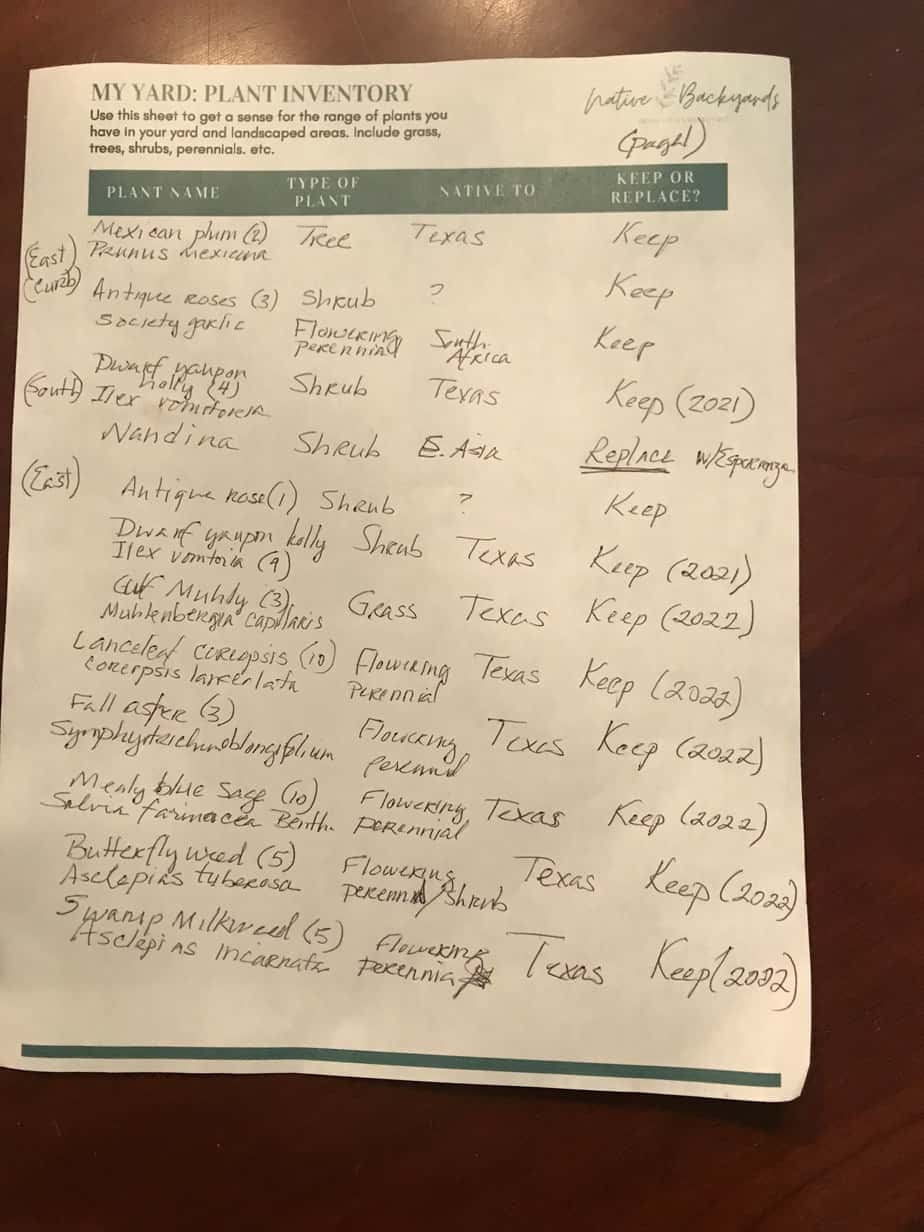 MY YARD: PLANT INVENTORY
Native Backyards
Use this sheet to get a sense for the range of plants you
have in your yard and landscaped areas. Include grass,
trees, shrubs, perennials. etc.
(page 1)
PLANT NAME TYPE OF PLANT NATIVE TO KEEP OR REPLACE?
(East) (Curb)
Mexican plum (2) Tree Texas Keep
Prunus mexicana
Antique roses (3) Shrub ? Keep
Society garlic Flowering perennial South Africa Keep
(South)
Dwarf yaupon
holly (4) Shrub Texas Keep (2021)
Ilex vomitoria
Nandina Shrub E. Asia Replace w/Esperanza
(East)
Antique rose (1) Shrub ? Keep
Dwarf yaupon holly Shrub Texas Keep (2021)
Ilex vomitoria (9)
Gulf Muhly (3) Grass Texas Keep (2022)
Muhlenbergia capillaris
Lanceleaf coreopsis (10) Flowering perennial Texas Keep (2022)
coreopsis lanceolata
Fall aster (3) Flowering perennial Texas Keep (2022)
Symphyotrichum oblongifolium
Mealy blue sage (10) Flowering perennial Texas Keep (2022)
Salvia farinacea Benth.
Butterfly weed (5) Flowering perennial/shrub Texas Keep (2022)
Asclepias tuberosa
Swamp Milkweed (5) Flowering perennial Texas Keep (2022)
Asclepias incarnata